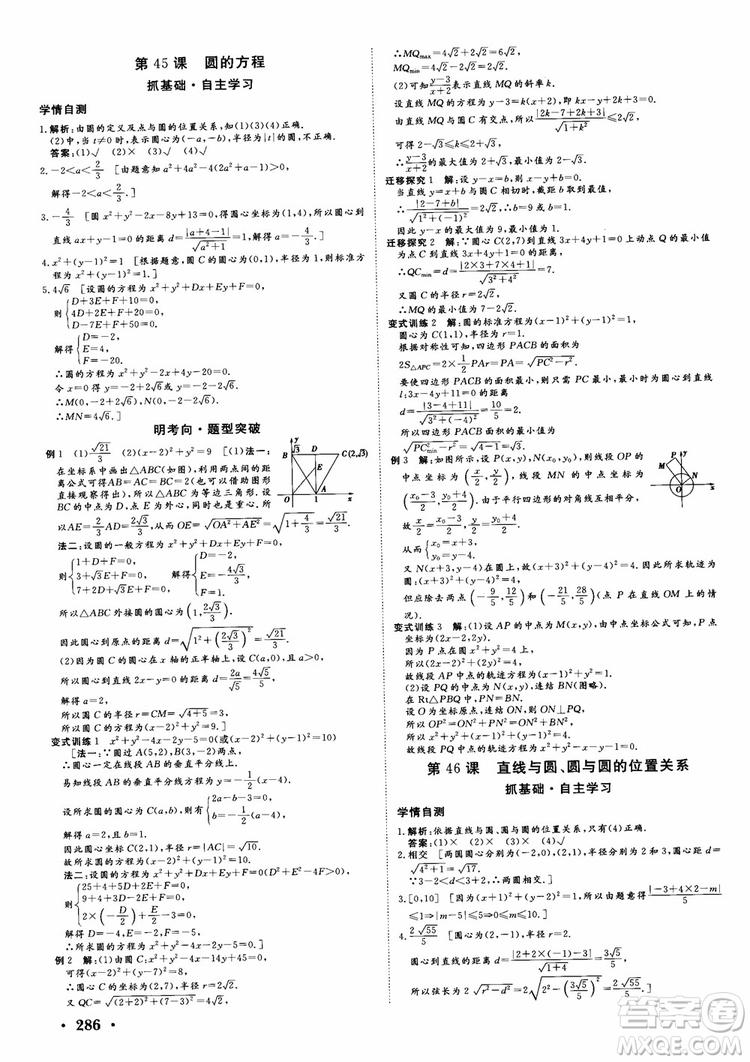 第 45 课 圆的方程
抓基础·自主学习
学情自测
1.解析:由圆的定义及点与圆的位置关系,知(1)(3)(4)正确.
(2)中,当 t≠0 时,表示圆心为(-a,-b),半径为|t|的圆.
答案:(1)√ (2)× (3)√ (4)√
2.-2<a<2/3 [由题意知 a²+4a²-4(2a²+a-1)>0,
解得-2<a<2/3.]
3.-4/3 [圆 x²+y²-2x-8y+13=0,得圆心坐标为(1,4),所以圆心到
直线 ax+y-1=0 的距离 d=|a+4-1|/√(a²+1)=1,解得 a=-4/3.]
4.x²+(y-1)²=1 [根据题意得点(1,0)关于直线 y=x 对称的点(0,1)为圆心,又半径 r=1,所以圆 C 的标准方程为 x²+(y-1)²=1.]
5.4√6 [设圆的方程为 x²+y²+Dx+Ey+F=0,
则{D+3E+F+10=0, 4D+2E+F+20=0, D-7E+F+50=0.
解得{D=-2, E=4, F=-20.
∴圆的方程为 x²+y²-2x+4y-20=0.
令 x=0,得 y=-2+2√6 或 y=-2-2√6.
∴M(0,-2+2√6),N(0,-2-2√6),
∴MN=4√6.]
明考向·题型突破
例 1 (1)√21/3 (2)(x-2)²+y²=9 [(1)法一:
在坐标系中画出△ABC(如图),利用两点间的距
离公式可得 AB=AC=BC=2(也可以借助图形
直接观察得出),所以△ABC 为等边三角形.设
BC 的中点为 D,点 E 为外心,同时也是重心.所
以 AE=2/3AD=2√3/3,从而 OE=√(OA²+AE²)=√(1+4/3)=√21/3.
法二:设圆的一般方程为 x²+y²+Dx+Ey+F=0,
则{1+D+F=0, 3+√3E+F=0, 7+2D+√3E+F=0,
所以△ABC 外接圆的圆心为(1,2√3/3),
所以圆心到原点的距离 d=√(1²+(2√3/3)²)=√21/3.
(2)因为圆 C 的圆心在 x 轴的正半轴上,设 C(a,0),且 a>0,
所以圆心到直线 2x-y=0 的距离 d=2a/√5=4√5/5,解得 a=2,
所以圆 C 的半径 r=CM=√(4+5)=3,
所以圆 C 的方程为(x-2)²+y²=9.]
变式训练 1 x²+y²-4x-2y-5=0(或(x-2)²+(y-1)²=10)
[法一:∵圆过 A(5,2),B(3,-2)两点,
∴圆心一定在线段 AB 的垂直平分线上.
易知线段 AB 的垂直平分线方程为 y=-1/2(x-4).
设所求圆的圆心为 C(a,b),则有{2a-b-3=0, b=-1/2(a-4),
解得{a=2, b=1.
∴圆心坐标 C(2,1),半径 r=|AC|=√10.
∴所求圆的方程为(x-2)²+(y-1)²=10.
法二:设圆的方程为 x²+y²+Dx+Ey+F=0,
则{25+4+5D+2E+F=0, 9+4+3D-2E+F=0, 2×(-D/2)-(-E/2)-3=0,
解得{D=-4, E=-2, F=-5.
∴所求圆的方程为 x²+y²-4x-2y-5=0.]
例 2 解:(1)由圆 C:x²+y²-4x-14y+45=0,
可得(x-2)²+(y-7)²=8,
∴圆心 C 的坐标为(2,7),半径 r=2√2.
又 QC=√((2+2)²+(7-3)²)=4√2,
∴MQmax=4√2+2√2=6√2,
MQmin=4√2-2√2=2√2.
(2)可知(y-3)/(x+2)表示直线 MQ 的斜率 k.
设直线 MQ 的方程为 y-3=k(x+2),即 kx-y+2k+3=0.
由直线 MQ 与圆 C 有交点,所以|2k-7+2k+3|/√(1+k²)≤2√2,
可得 2-√3≤k≤2+√3,
∴(y-3)/(x+2)的最大值为 2+√3,最小值为 2-√3.
迁移探究 1 解:设 y-x=b,则 x-y+b=0.
当直线 y=x+b 与圆 C 相切时,截距 b 取到最值,
∴|2-7+b|/√(1²+(-1)²)=2√2,∴b=9 或 b=1.
因此 y-x 的最大值为 9,最小值为 1.
迁移探究 2 解:∵圆心 C(2,7)到直线 3x+4y+1=0 上动点 Q 的最小值
为点 C 到直线 3x+4y+1=0 的距离,
∴QCmin=d=|2×3+7×4+1|/√(3²+4²)=7.
又圆 C 的半径 r=2√2,
∴MQ 的最小值为 7-2√2.
变式训练 2 解:圆的标准方程为(x-1)²+(y-1)²=1,
圆心为 C(1,1),半径为 r=1.
根据对称性可知,四边形 PACB 的面积为
2S△APC=2×1/2PAr=PA=√(PC²-r²).
要使四边形 PACB 的面积最小,则只需 PC 最小,最小时为圆心到直线
l:3x-4y+11=0 的距离
d=|3-4+11|/√(3²+(-4)²)=10/5=2.
所以四边形 PACB 面积的最小值为
√(PC²min-r²)=√(4-1)=√3.
例 3 解:如图所示,设 P(x,y),N(x₀,y₀),则线段 OP 的中
点坐标为(x/2,y/2),线段 MN 的中点坐标为
((x₀-3)/2,(y₀+4)/2).由于平行四边形的对角线互相平分,
故x/2=(x₀-3)/2,y/2=(y₀+4)/2.
从而{x₀=x+3, y₀=y-4.
又 N(x+3,y-4)在圆上,故(x+3)²+(y-4)²=4.因此所求轨迹为
圆(x+3)²+(y-4)²=4,
但应除去两点(-9/5,12/5)和(-21/5,28/5)(点 P 在直线 OM 上的
情况).
变式训练 3 解:(1)设 AP 的中点为 M(x,y),由中点坐标公式可知,P 点
坐标为(2x-2,2y).
因为 P 点在圆 x²+y²=4 上,
所以(2x-2)²+(2y)²=4,
故线段 AP 中点的轨迹方程为(x-1)²+y²=1.
(2)设 PQ 的中点为 N(x,y),连结 BN(图略).
在 Rt△PBQ 中,PN=BN.
设 O 为坐标原点,连结 ON,则 ON⊥PQ,
所以 OP²=ON²+PN²=ON²+BN²,
所以 x²+y²+(x-1)²+(y-1)²=4.
故线段 PQ 中点的轨迹方程为 x²+y²-x-y-1=0.
第 46 课 直线与圆、圆与圆的位置关系
抓基础·自主学习
学情自测
1.解析:依据直线与圆、圆与圆的位置关系,只有(4)正确.
答案:(1)× (2)× (3)× (4)√
2.相交 [两圆圆心分别为(-2,0),(2,1),半径分别为 2 和 3,圆心距 d=
√(4²+1)=√17.
∵3-2<d<3+2,∴两圆相交.]
3.[0,10] [圆的圆心为(-1,2),半径 r=1,由题意得|-3+4×2-m|/5
≤1⇒|5-m|≤5⇒0≤m≤10.]
4.2√55/5 [圆心为(2,-1),半径 r=2.
圆心到直线的距离 d=|2+2×(-1)-3|/√(1+4)=3√5/5,
所以弦长为 2√(r²-d²)=2√(2²-(3√5/5)²)=2√55/5.]
·286·